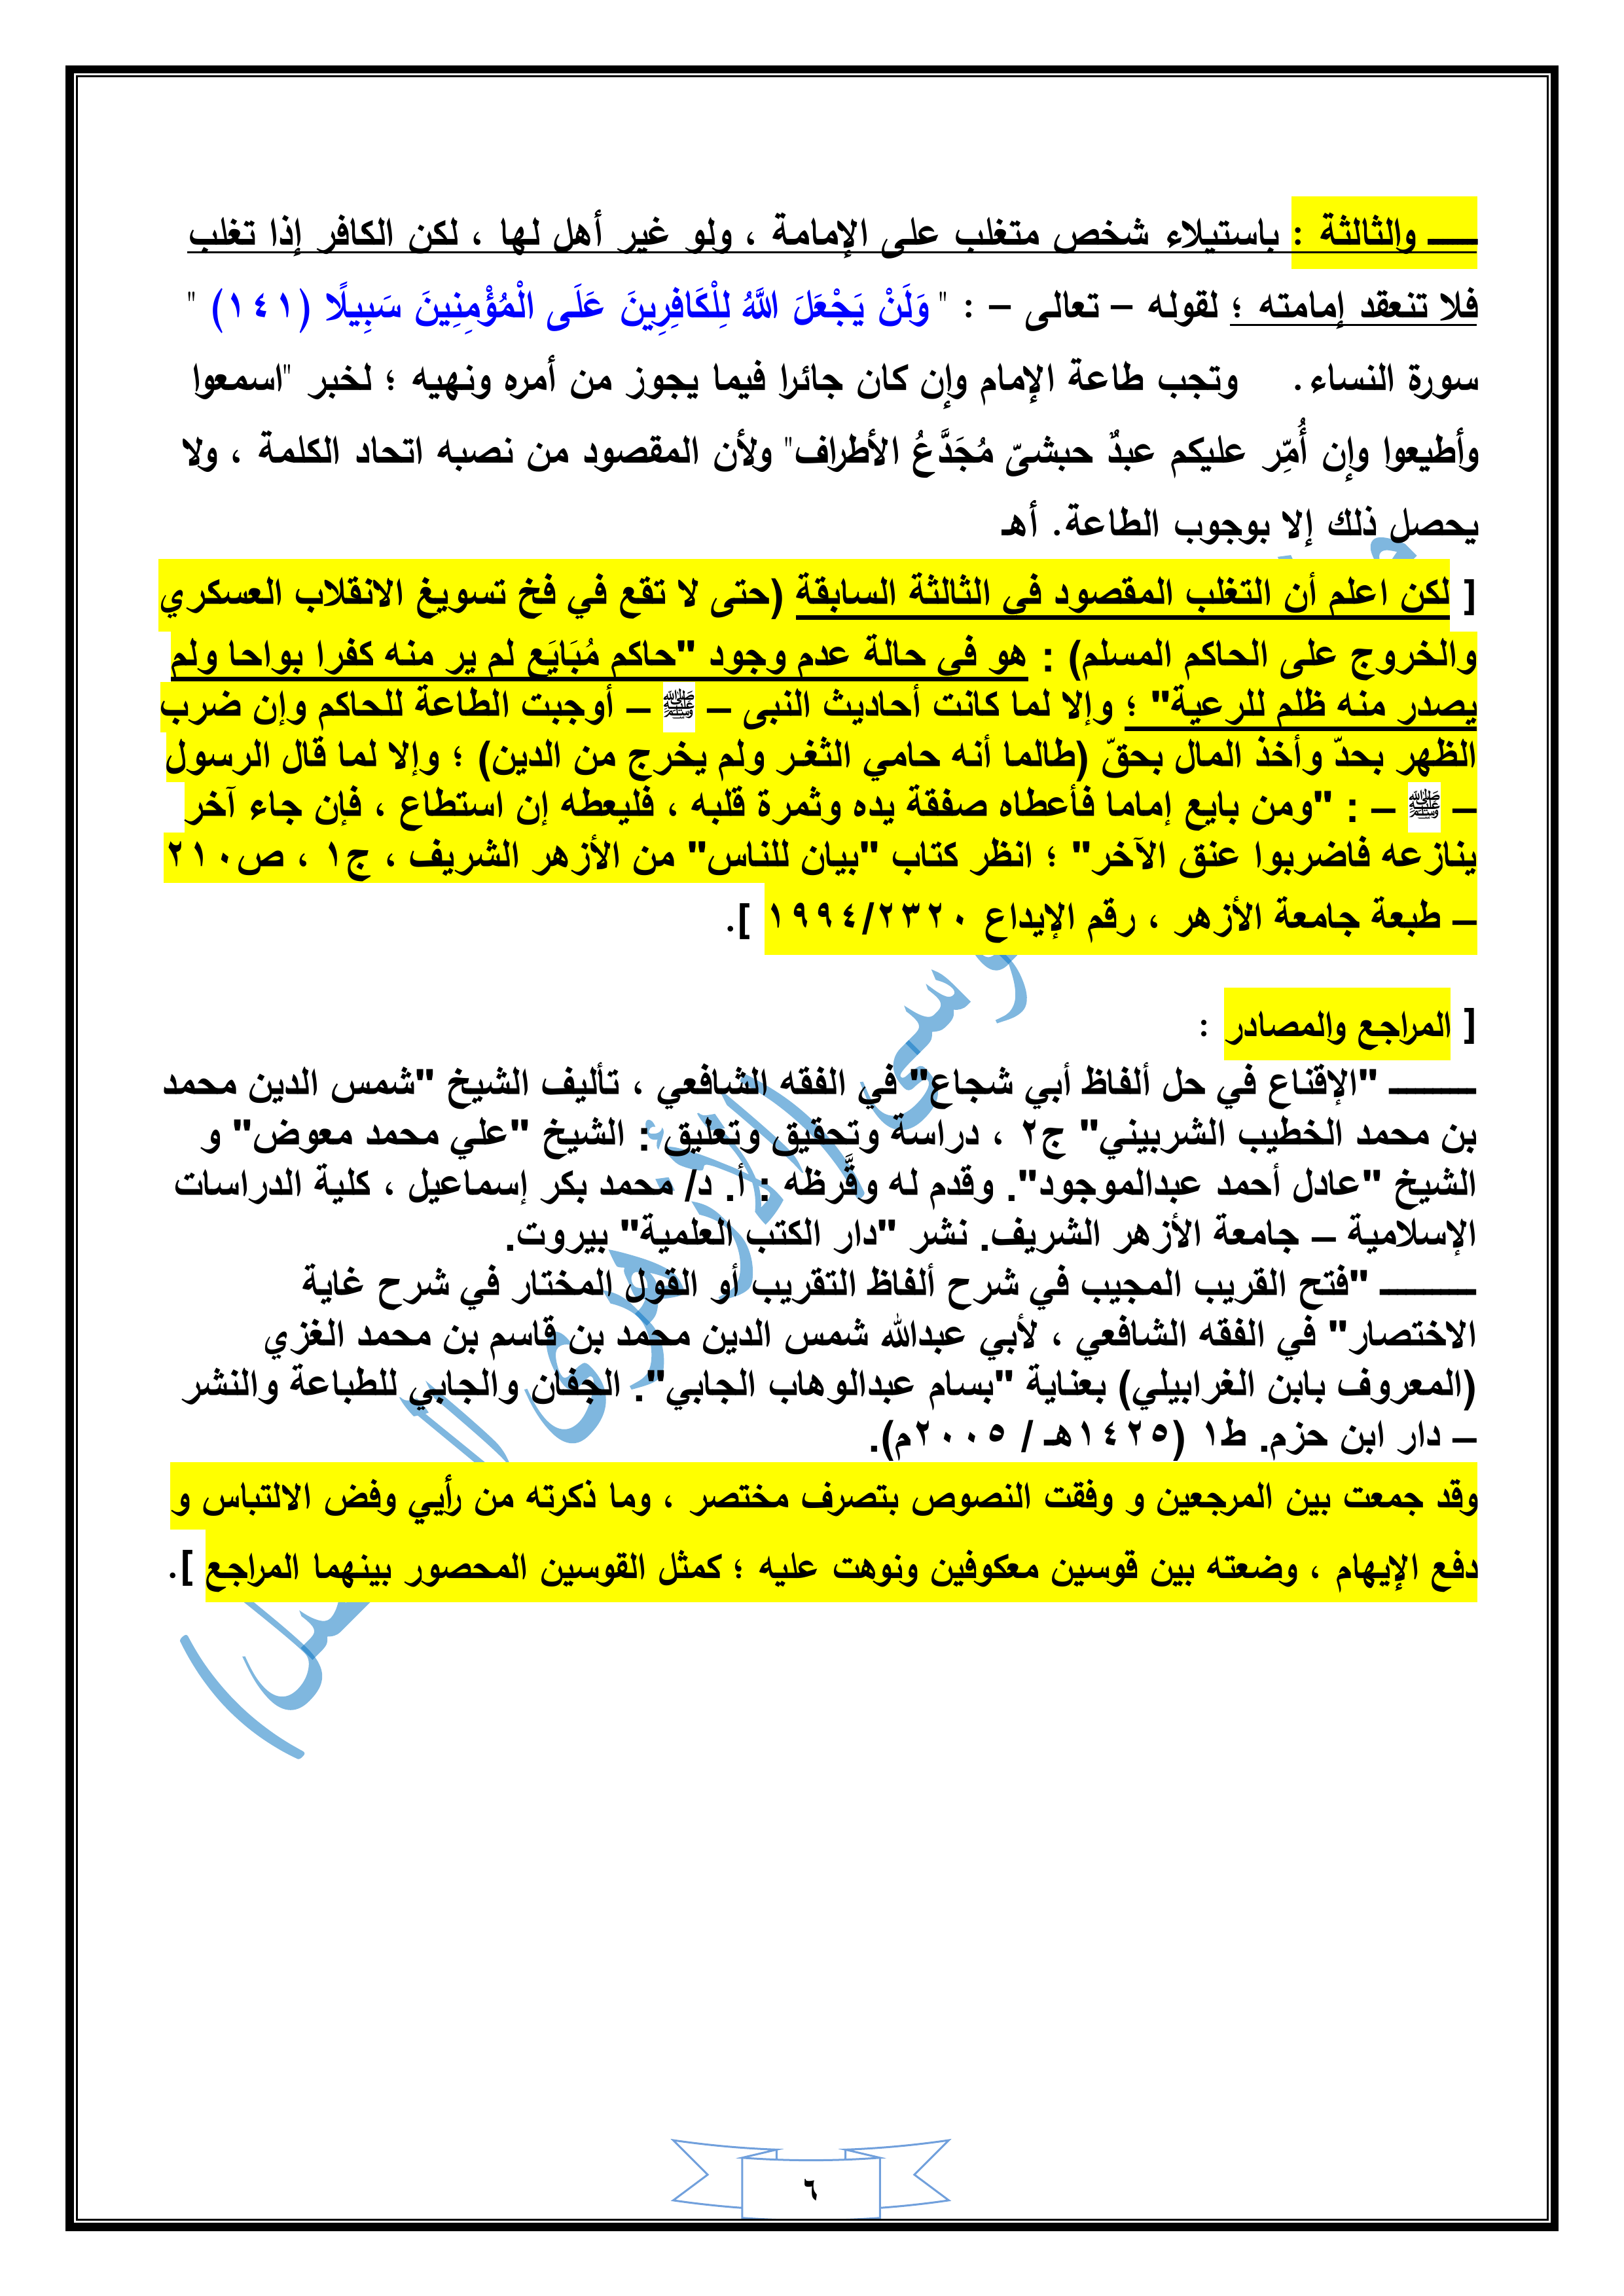 ــــ والثالثة : باستيلاء شخص متغلب على الإمامة ، ولو غير أهل لها ، لكن الكافر إذا تغلب
فلا تنعقد إمامته ؛ لقوله – تعالى – : " وَلَنْ يَجْعَلَ اللَّهُ لِلْكَافِرِينَ عَلَى الْمُؤْمِنِينَ سَبِيلًا (١٤١) "
سورة النساء. وتجب طاعة الإمام وإن كان جائرا فيما يجوز من أمره ونهيه ؛ لخبر "اسمعوا
وأطيعوا وإن أُمِّر عليكم عبدٌ حبشىّ مُجَدَّعُ الأطراف" ولأن المقصود من نصبه اتحاد الكلمة ، ولا
يحصل ذلك إلا بوجوب الطاعة. أهـ
[ لكن اعلم أن التغلب المقصود فى الثالثة السابقة (حتى لا تقع في فخ تسويغ الانقلاب العسكري
والخروج على الحاكم المسلم) : هو فى حالة عدم وجود "حاكم مُبَايَع لم ير منه كفرا بواحا ولم
يصدر منه ظلم للرعية" ؛ وإلا لما كانت أحاديث النبى – ﷺ – أوجبت الطاعة للحاكم وإن ضرب
الظهر بحدّ وأخذ المال بحقّ (طالما أنه حامي الثغر ولم يخرج من الدين) ؛ وإلا لما قال الرسول
– ﷺ – : "ومن بايع إماما فأعطاه صفقة يده وثمرة قلبه ، فليعطه إن استطاع ، فإن جاء آخر
ينازعه فاضربوا عنق الآخر" ؛ انظر كتاب "بيان للناس" من الأزهر الشريف ، ج١ ، ص٢١٠
– طبعة جامعة الأزهر ، رقم الإيداع ١٩٩٤/٢٣٢٠ ].
[ المراجع والمصادر :
ـــــــ "الإقناع في حل ألفاظ أبي شجاع" في الفقه الشافعي ، تأليف الشيخ "شمس الدين محمد
بن محمد الخطيب الشربيني" ج٢ ، دراسة وتحقيق وتعليق : الشيخ "علي محمد معوض" و
الشيخ "عادل أحمد عبدالموجود". وقدم له وقَّرظه : أ. د/ محمد بكر إسماعيل ، كلية الدراسات
الإسلامية – جامعة الأزهر الشريف. نشر "دار الكتب العلمية" بيروت.
ـــــــ "فتح القريب المجيب في شرح ألفاظ التقريب أو القول المختار في شرح غاية
الاختصار" في الفقه الشافعي ، لأبي عبدالله شمس الدين محمد بن قاسم بن محمد الغزي
(المعروف بابن الغرابيلي) بعناية "بسام عبدالوهاب الجابي". الجفان والجابي للطباعة والنشر
– دار ابن حزم. ط١ (١٤٢٥هـ / ٢٠٠٥م).
وقد جمعت بين المرجعين و وفقت النصوص بتصرف مختصر ، وما ذكرته من رأيي وفض الالتباس و
دفع الإيهام ، وضعته بين قوسين معكوفين ونوهت عليه ؛ كمثل القوسين المحصور بينهما المراجع ].
٦